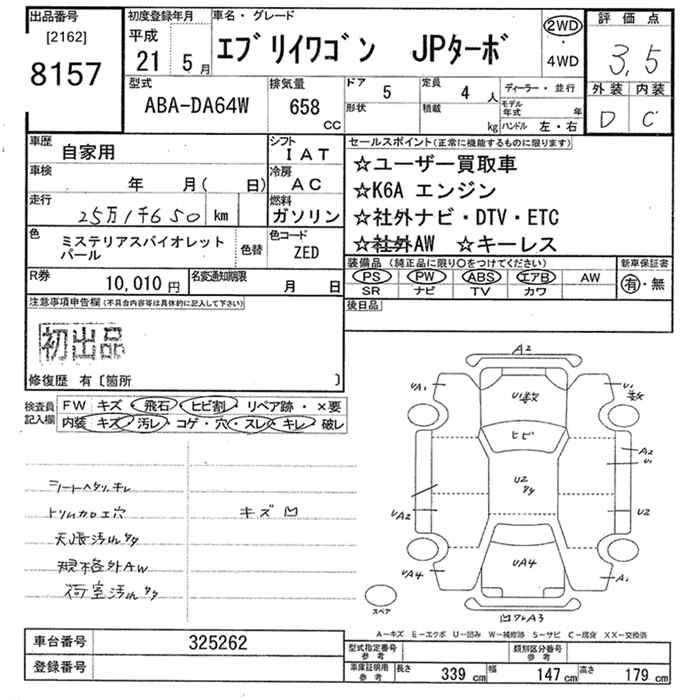 出品番号
[2162]
8157
初度登録年月
平成
21 5月
車名・グレード
エブリイワゴン JPターボ
2WD
・
4WD
評価点
3,5
外装 内装
D C
型式
ABA-DA64W
排気量
658
CC
ドア
5
形状
定員
4 人
積載
kg
ディーラー・並行
モデル年式 年
ハンドル 左・右
車歴
自家用
車検
年 月( 日)
走行
25万1千650 km
色
ミステリアスバイオレット
パール
色替
シフト
IAT
冷房
AC
燃料
ガソリン
色コード
ZED
セールスポイント(正常に機能するものに限ります)
☆ユーザー買取車
☆K6A エンジン
☆社外ナビ・DTV・ETC
☆社外AW ☆キーレス
R券
10,010 円
名変通知期限
月 日
装備品(純正品に限り○をつけてください)
PS PW ABS エアB AW
SR ナビ TV カワ
新車保証書
有・無
後日品
注意事項申告欄(不具合内容等は具体的に記入して下さい)
初出品
修復歴 有〔箇所 〕
検査員
記入欄
FW キズ・飛石・ヒビ割・リペア跡・×要
内装 キズ・汚レ・コゲ・穴・スレ・キレ・破レ
シートヘタリ、キレ
トリムカロエ穴
キズ凹
天張汚れ
規格外AW
荷室汚れ
A2
UA1
U1
ヒビ
U2
A2
U1
UA2
U2
UA4
UA4
A1
A3
スペア
A−キズ E−エクボ U−凹み W−補修跡 S−サビ C−腐食 XX−交換済
車台番号
325262
登録番号
型式指定番号
参考
類別区分番号
参考
車庫証明用
参考
長さ 339 cm
幅 147 cm
高さ 179 cm